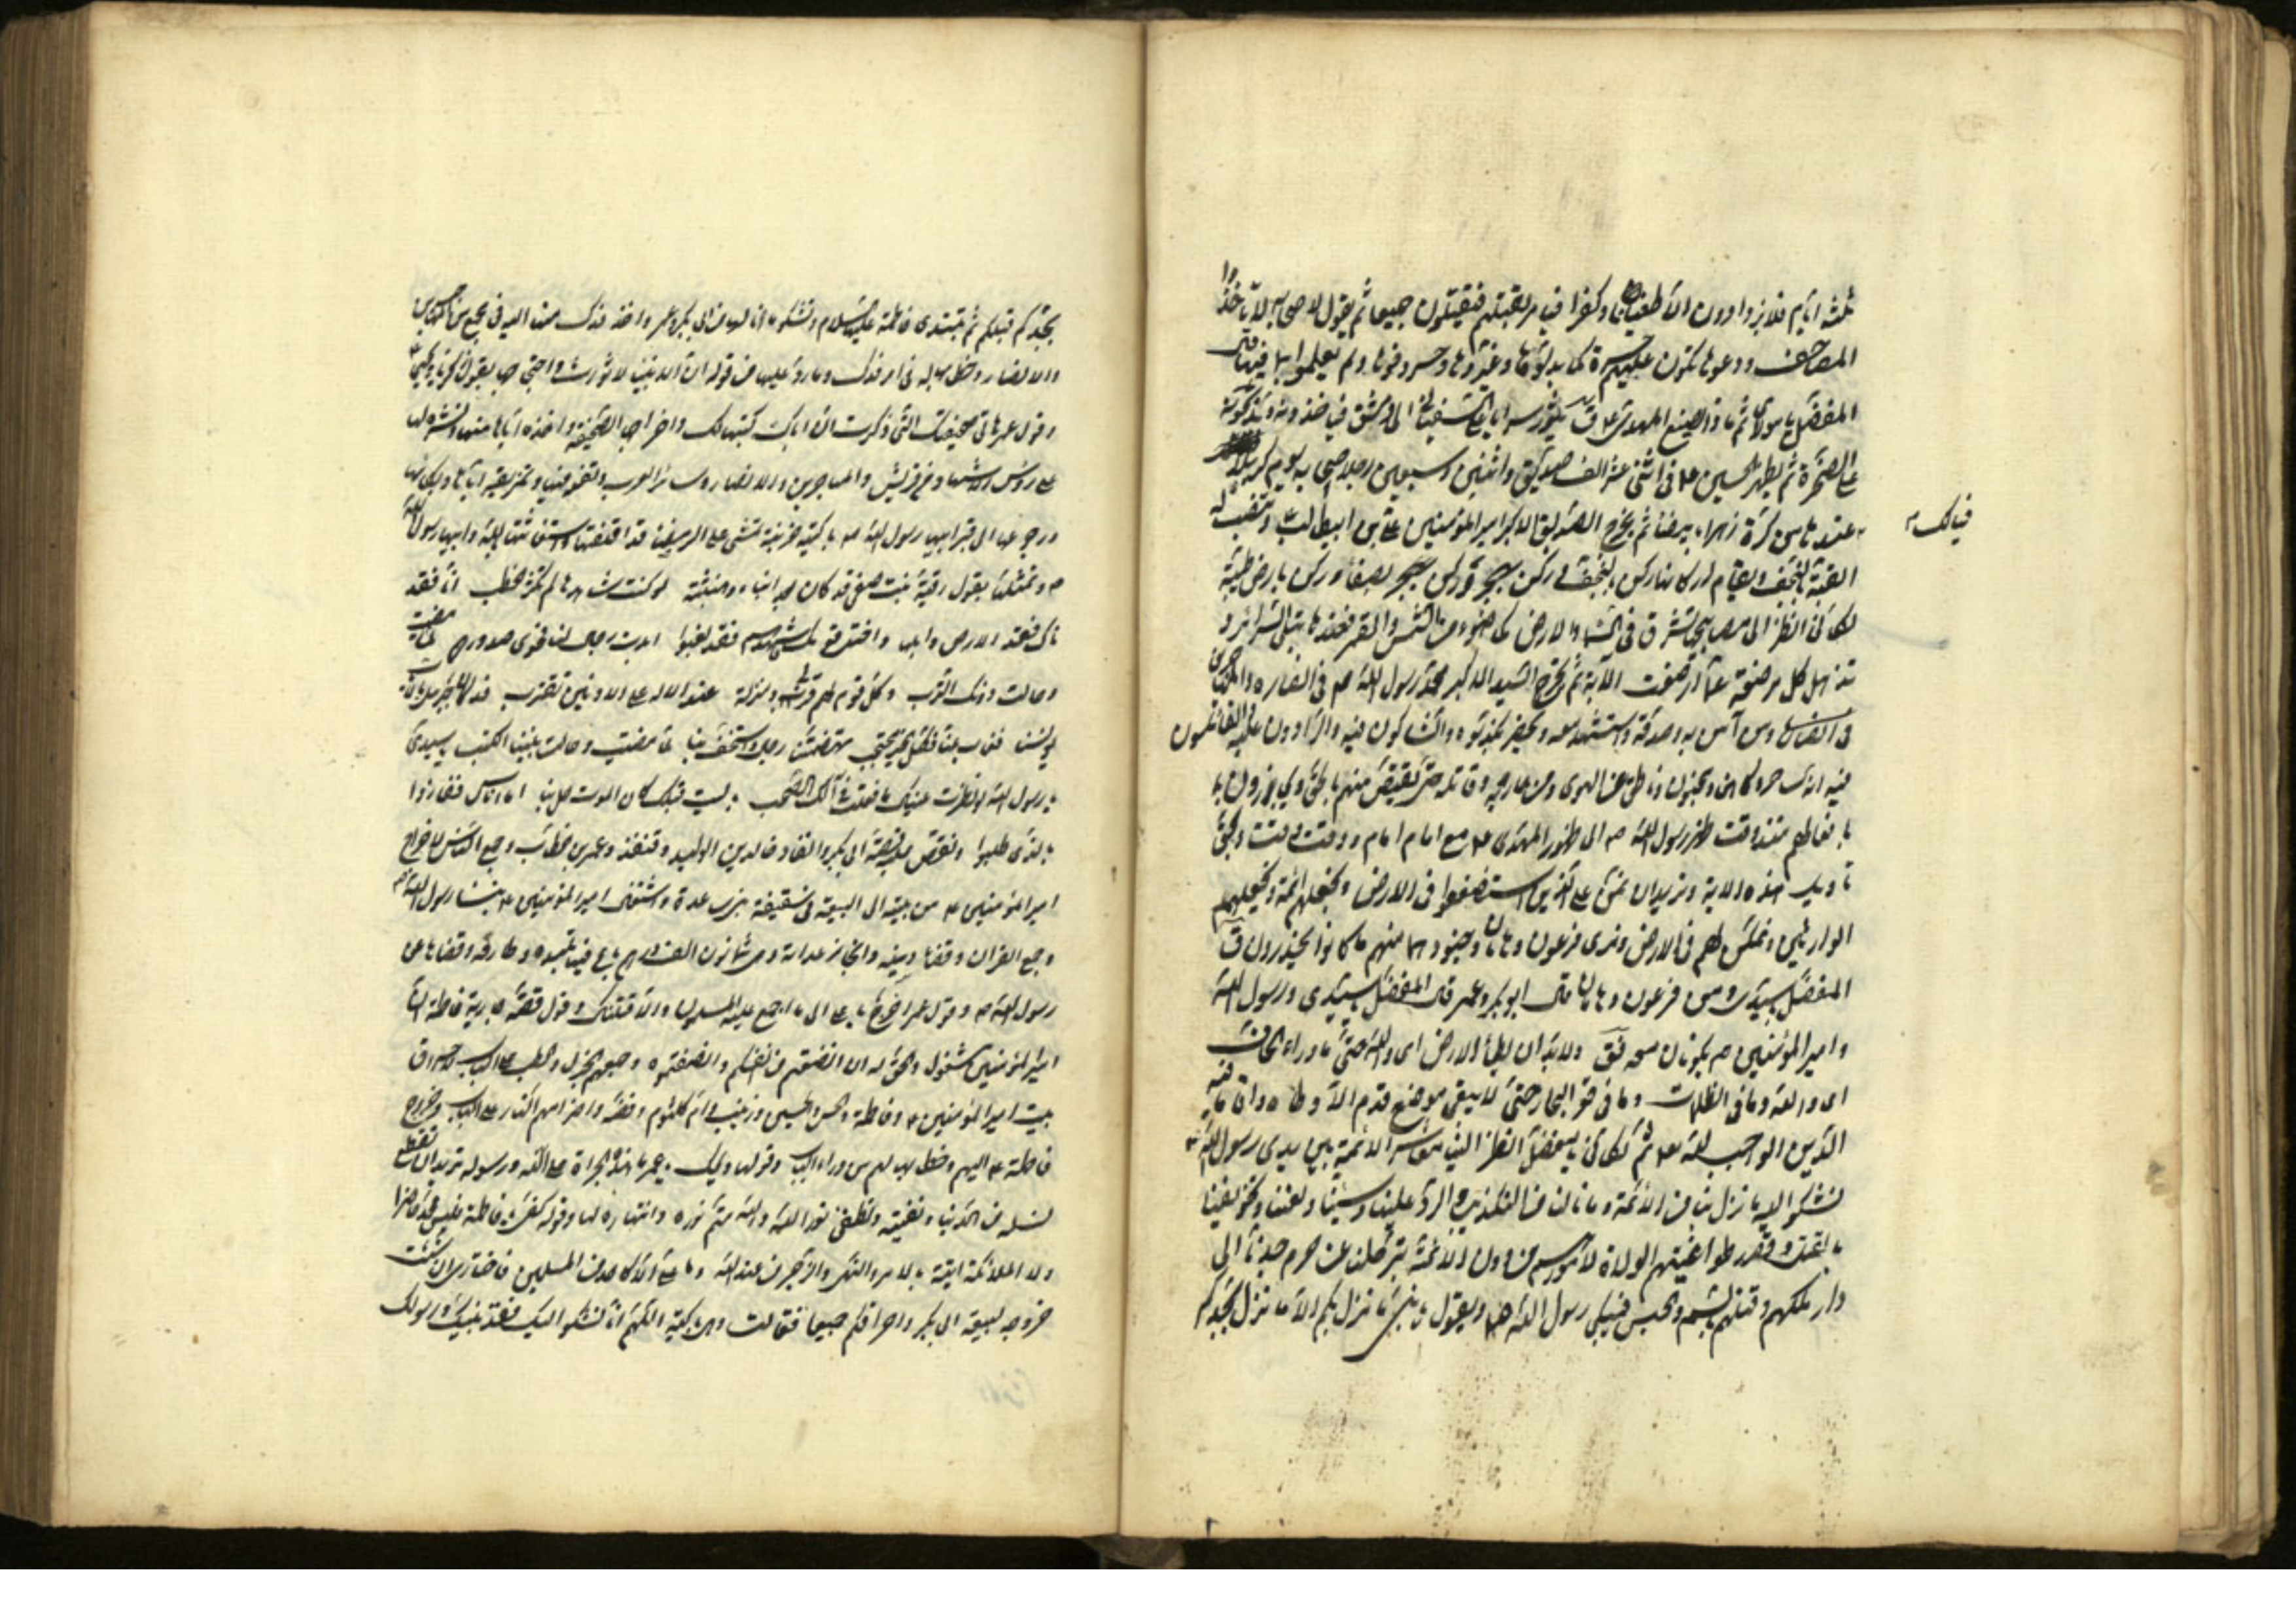 ثلثة ايام فلا يزدادون الا طغيانا وكفرا فيامر بقتلهم فيقتلون جميعا ثم يقول لاصحابه لا تاخذوا
المصاحف ودعوها تكون عليهم حسرة كما بدلوها وغيروها وحرفوها ولم يعملوا بما فيها قال
المفضل يا مولاى ثم ماذا يصنع المهدى ع ق يثور سرايا على السفيانى الى دمشق فياخذونه ويذبحونه
على الصخرة ثم يظهر الحسين ع فى اثنى عشر الف صديق واثنين وسبعين رجلا اصحابه يوم كربلا
فيالك
عندها من كرة زهراء بيضا ثم يخرج الصديق الاكبر امير المؤمنين على بن ابيطالب وتنصب له
القبة بالنجف ويقام اركانها ركن بالنجف وركن بهجر وركن بصنعا وركن بارض طيبة
لكانى انظر الى مصابيحها تشرق فى السماء والارض كاضوء من الشمس والقمر فعندها تبلى السرائر و
تذهل كل مرضعة عما ارضعت الآية ثم يخرج السيد الاكبر محمد رسول الله ص فى انصاره والمهاجرين
ومن آمن به وصدقه واستشهد معه ويحضر مكذبوه والشاكون فيه والرادون عليه القائلون
فيه انه ساحر وكاهن ومجنون وناطق عن الهوى ومن حاربه وقاتله حتى يقتص منهم بالحق ويجازون
بافعالهم منذ وقت ظهر رسول الله ص الى ظهور المهدى ع مع امام امام ووقت وقت ويحق
تاويل هذه الاية ونريد ان نمن على الذين استضعفوا فى الارض ونجعلهم ائمة ونجعلهم
الوارثين ونمكن لهم فى الارض ونرى فرعون وهامان وجنودهما منهم ما كانوا يحذرون ق
المفضل يا سيدى ومن فرعون وهامان قال ابو بكر وعمر قال المفضل يا سيدى ورسول الله
وامير المؤمنين ص يكونان معه فق ولا بد ان يطأ الارض اى والله حتى ما وراء القاف
اى والله وما فى الظلمات وما فى قعر البحار حتى لا يبقى موضع قدم الا وطئاه واقاما فيه
الدين الواجب لله تع ثم لكانى يا مفضل انظر الينا معاشر الائمة بين يدى رسول الله ص
نشكو اليه ما نزل بنا من الامة وما نالنا من التكذيب والرد علينا وسبنا ولعننا وتخويفنا
بالقتل وقصد طواغيتهم الولاة لامورهم من دون الامة بترحلنا عن حرم جدنا الى
دار ملكهم وقتلهم بالسم والحبس فيبكى رسول الله ص ويقول يا بنى ما نزل بكم الا ما نزل بجدكم
بجدكم قبلكم ثم تبتدى فاطمة عليها السلام وتشكو ما نالها من ابى بكر وعمر واخذ فدك منها
والانصار وخطابها له فى امر فدك وما رد عليها من قوله ان الانبيا لا تورث واحتجاجها بقول زكريا ويحيى
وقول عمر هاتى صحيفتك التى ذكرت ان اباك كتبها لك واخراجها الصحيفة واخذه اياها منها ونشره لها
على رؤس الاشهاد من قريش والمهاجرين والانصار وسائر العرب وتفله فيها وتمزيقه اياها وبكائها
ورجوعها الى قبر ابيها رسول الله ص باكية حزينة تمشى على الرمضا قد اقلقتها واستغاثتها بالله وابيها رسول الله
ص وتمثلها بقول رقية بنت صفى قد كان بعدك انباء وهنبثة لو كنت شاهدها لم تكثر الخطب انا فقد
ناك فقد الارض وابلها واختل قومك فاشهدهم فقد لعبوا ابدت رجال لنا فحوى صدورهم لما مضيت
وحالت دونك الترب وكل قوم لهم قربى ومنزلة عند الاله على الادنين مقترب
يونسنا فغاب عنا فكل الخير محتجب تهضمتنا رجال واستخف بنا لما مضيت وحالت بيننا الكتب يا سيدى
يا رسول الله لو نظرت عيناك ما فعلت فى آلك الصحب يا ليت قبلك كان الموت حل بنا اما اناس ففازوا
بالذى طلبوا وتقص عليه قصة ابى بكر وانفاذه خالد بن الوليد وقنفذ وعمر بن الخطاب وجمع الناس لاخراج
امير المؤمنين ع من بيته الى البيعة فى سقيفة بنى ساعدة واشتغال امير المؤمنين ع بنساء رسول الله ص
وجمع القران وقضا دينه وانجاز عداته وهى ثمانون الف درهم باع فيها تليده وطارفه وقضاها عن
رسول الله ص وقول عمر اخرج يا على الى ما اجمع عليه المسلمون والا قتلناك وقول فضة جارية فاطمة ان
امير المؤمنين مشغول والحق له ان انصفتم من انفسكم وانصفتموه وجمعهم الجزل والحطب على الباب لاحراق
بيت امير المؤمنين ع وفاطمة والحسن والحسين وزينب وام كلثوم وفضة واضرامهم النار على الباب وخروج
فاطمة ع اليهم وخطابها لهم من وراء الباب وقولها ويحك يا عمر ما هذه الجراة على الله ورسوله تريد ان تقطع
نسله من الدنيا وتفنيه وتطفئ نور الله والله متم نوره وانتهاره لها وقوله كفى يا فاطمة فليس محمد حاضرا
ولا الملائكة اتية بالامر والنهى والزجر من عند الله وما على الا كاحد من المسلمين فاختارى ان شئت
خروجه لبيعة ابى بكر او احراقكم جميعا فقالت وهى باكية اللهم انا نشكو اليك فقد نبيك ورسولك